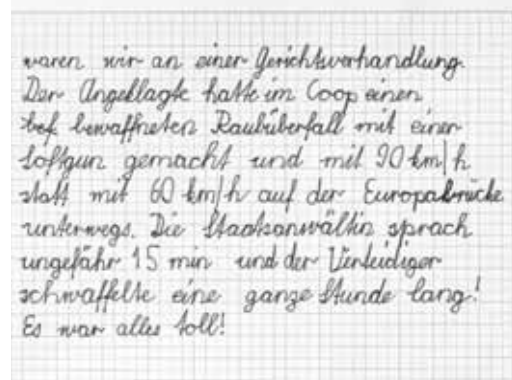 waren wir an einer Gerichtsverhandlung.
Der Angeklagte hatte im Coop einen
bewaffneten Raubüberfall mit einer
Softgun gemacht und mit 90 km/h
statt mit 60 km/h auf der Europabrücke
unterwegs. Die Staatsanwältin sprach
ungefähr 15 min und der Verteidiger
schwaffelte eine ganze Stunde lang!
Es war alles toll!